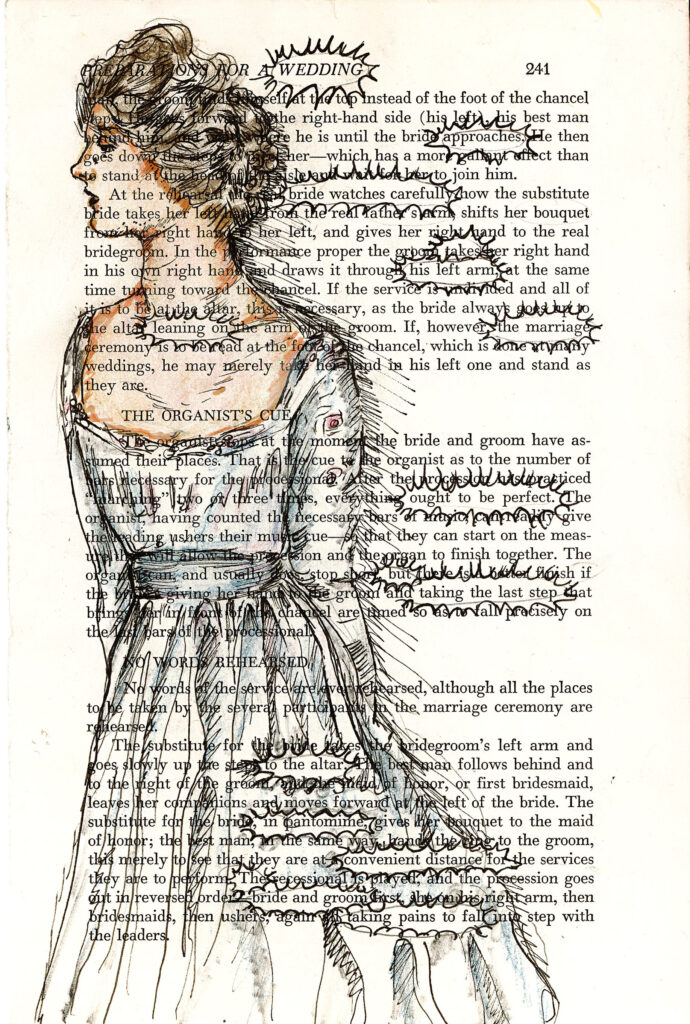 PREPARATIONS FOR A WEDDING 241
at the top instead of the foot of the chancel
forward to the right-hand side (his left), his best man
behind him, and where he is until the bride approaches. He then
goes down the steps to her—which has a more gallant effect than
to stand at the aisle and to join him.
At the rehearsal the bride watches carefully how the substitute
bride takes her left hand from the real father's arm, shifts her bouquet
from her right hand to her left, and gives her right hand to the real
bridegroom. In the performance proper the groom takes her right hand
in his own right hand and draws it through his left arm, at the same
time turning toward the chancel. If the service is undivided and all of
it is to be at the altar, this is necessary, as the bride always goes up to
the altar leaning on the arm of the groom. If, however, the marriage
ceremony is to be read at the foot of the chancel, which is done at many
weddings, he may merely take her hand in his left one and stand as
they are.
THE ORGANIST'S CUE
The organist stops at the moment the bride and groom have as-
sumed their places. That is the cue to the organist as to the number of
bars necessary for the processional. After the procession has practiced
"marching" two or three times, everything ought to be perfect. The
organist, having counted the necessary bars of music, can easily give
the leading ushers their music cue—so that they can start on the meas-
ure that will allow the procession and the organ to finish together. The
organist can, and usually does, stop short, but there is a better finish if
the bride's giving her hand to the groom and taking the last step that
brings her in front of the chancel are timed so as to fall precisely on
the last bars of the processional.
NO WORDS REHEARSED
No words of the service are ever rehearsed, although all the places
to be taken by the several participants in the marriage ceremony are
rehearsed.
The substitute for the bride takes the bridegroom's left arm and
goes slowly up the steps to the altar. The best man follows behind and
to the right of the groom, and the maid of honor, or first bridesmaid,
leaves her companions and moves forward at the left of the bride. The
substitute for the bride, in pantomime, gives her bouquet to the maid
of honor; the best man, in the same way, hands the ring to the groom,
this merely to see that they are at a convenient distance for the services
they are to perform. The recessional is played, and the procession goes
out in reversed order—bride and groom first, she on his right arm, then
bridesmaids, then ushers, again all taking pains to fall into step with
the leaders.